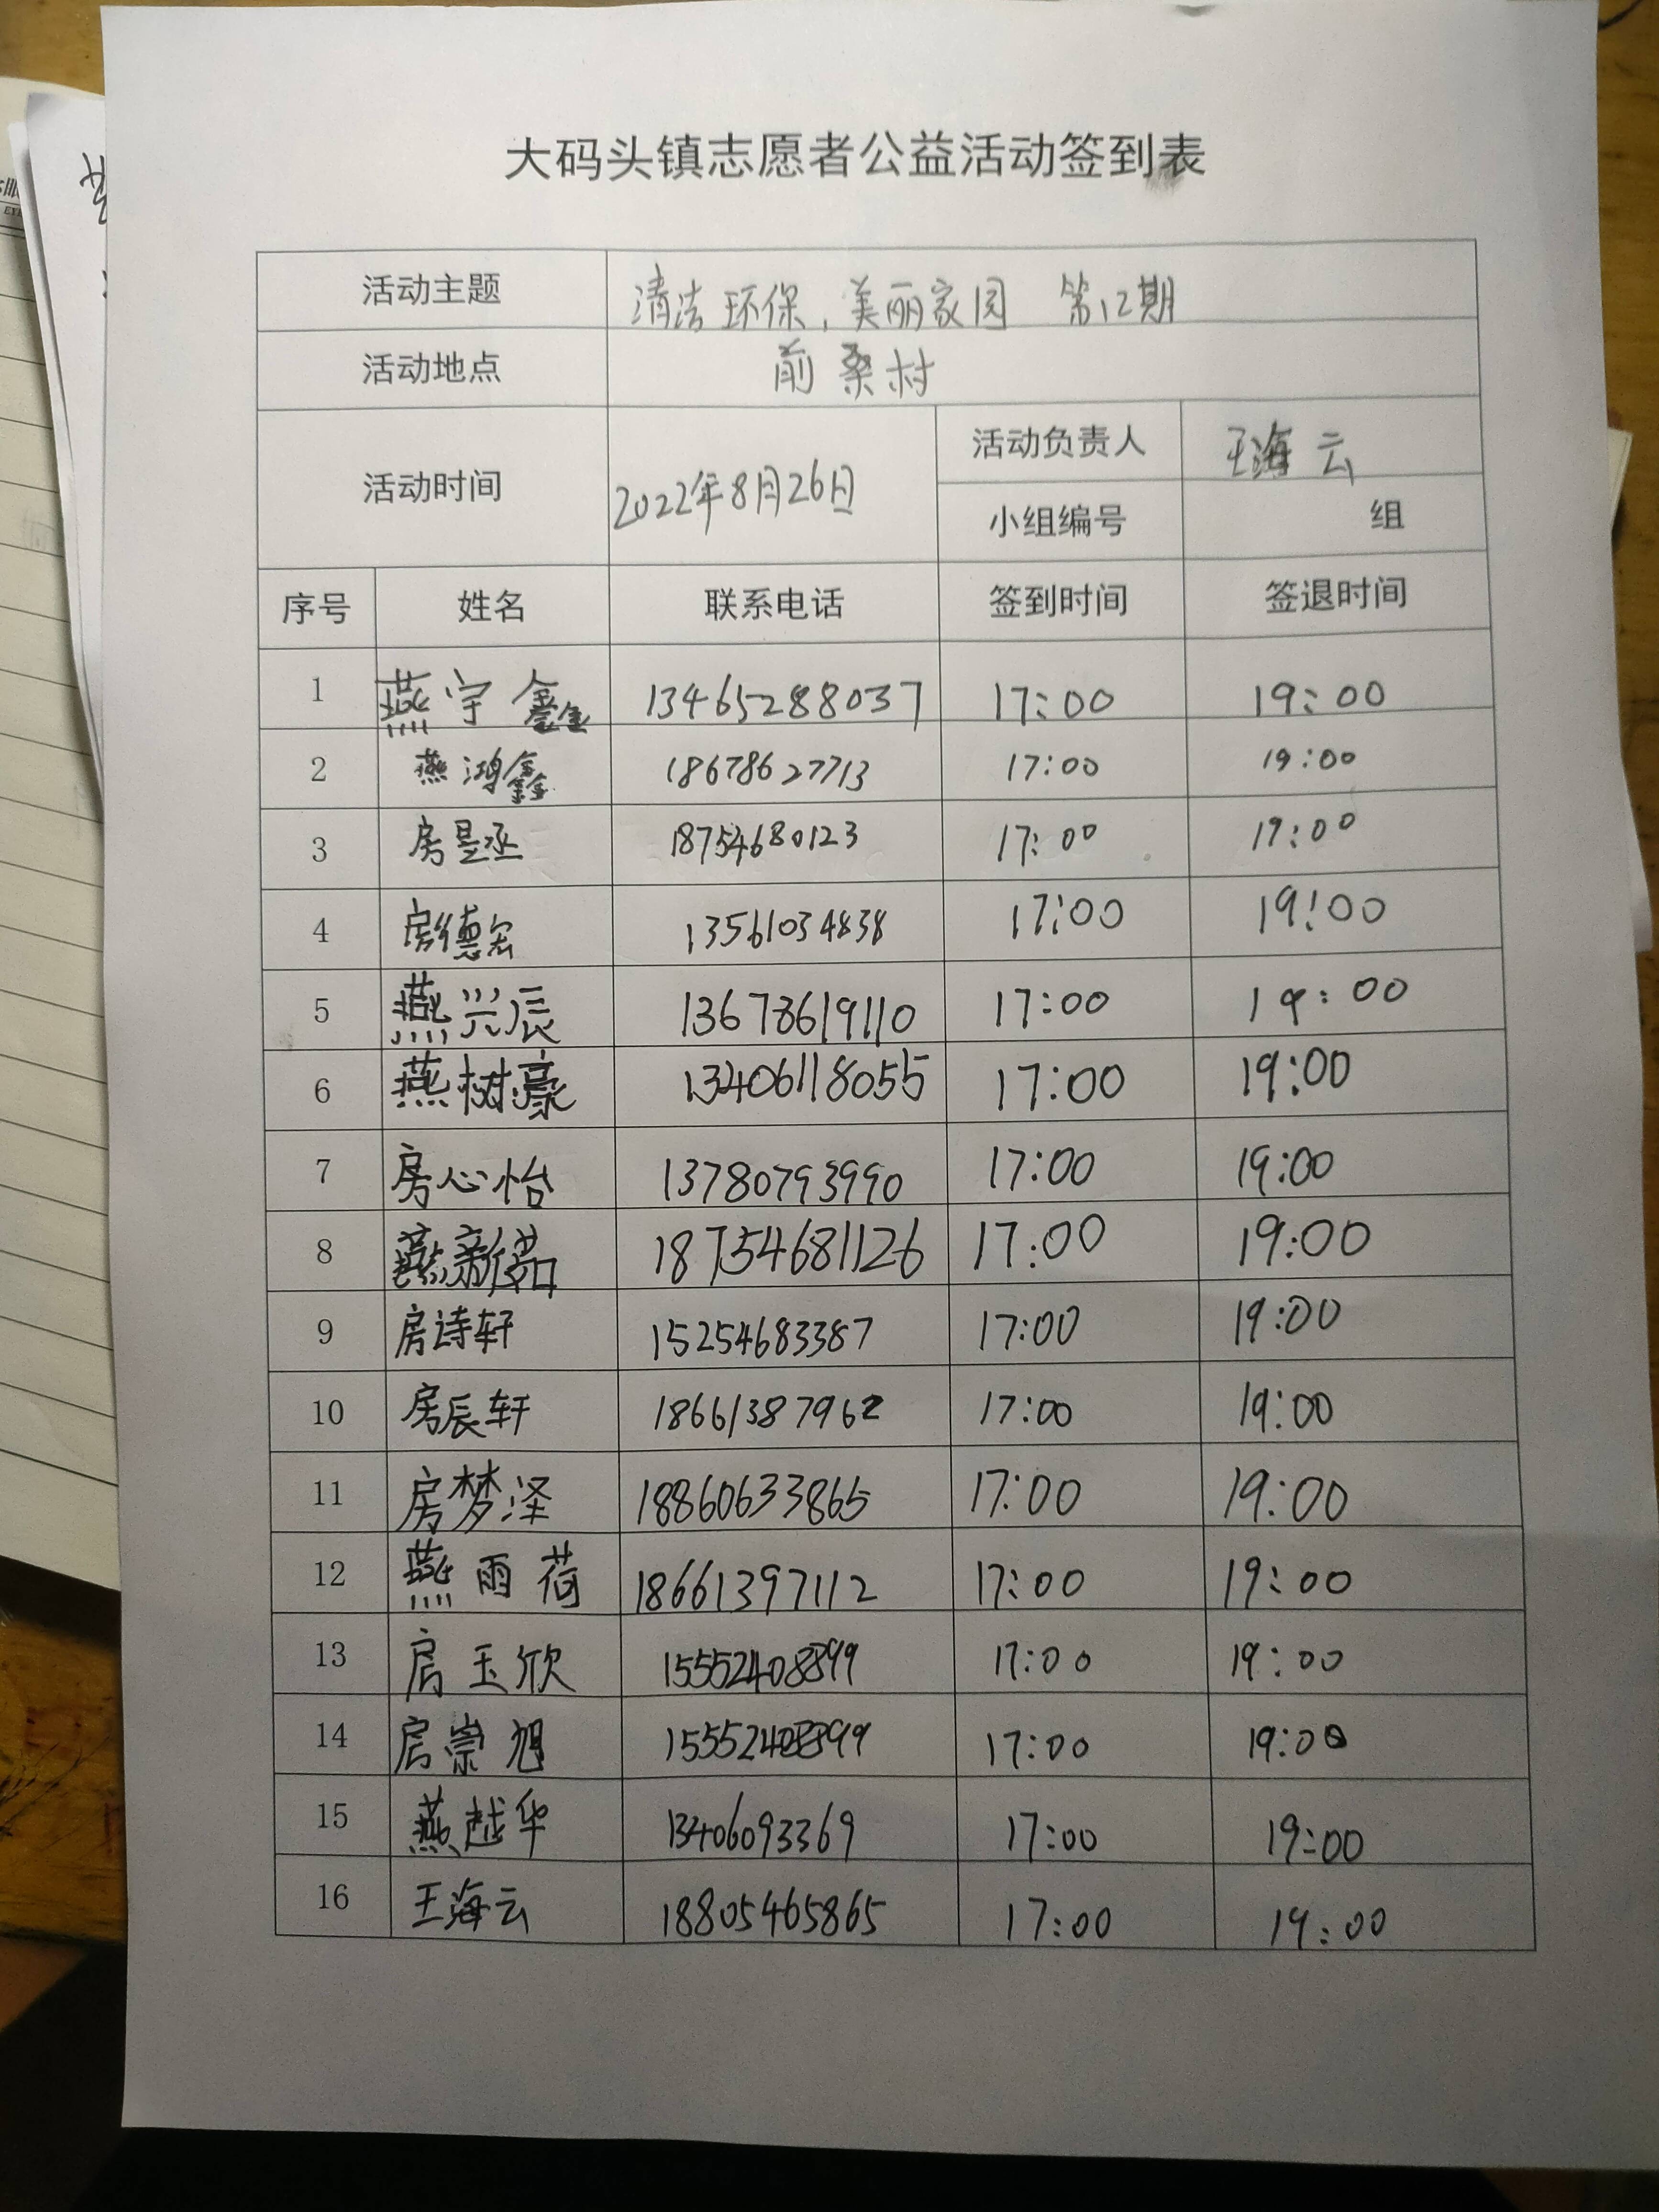 大码头镇志愿者公益活动签到表
活动主题 清洁环保,美丽家园 第12期
活动地点 前桑村
活动时间 2022年8月26日 活动负责人 王海云
小组编号 组
序号 姓名 联系电话 签到时间 签退时间
1 燕宇鑫 13465288037 17:00 19:00
2 燕鸿鑫 18678627713 17:00 19:00
3 房昱丞 18754680123 17:00 19:00
4 房德宏 13561034838 17:00 19:00
5 燕兴辰 13678619110 17:00 19:00
6 燕树豪 13406118055 17:00 19:00
7 房心怡 13780793990 17:00 19:00
8 燕新茹 18754681126 17:00 19:00
9 房诗轩 15254683387 17:00 19:00
10 房辰轩 18661387962 17:00 19:00
11 房梦泽 18860633865 17:00 19:00
12 燕雨荷 18661397112 17:00 19:00
13 房玉欣 15552408899 17:00 19:00
14 房崇旭 15552408899 17:00 19:00
15 燕越华 13406093369 17:00 19:00
16 王海云 18805465865 17:00 19:00